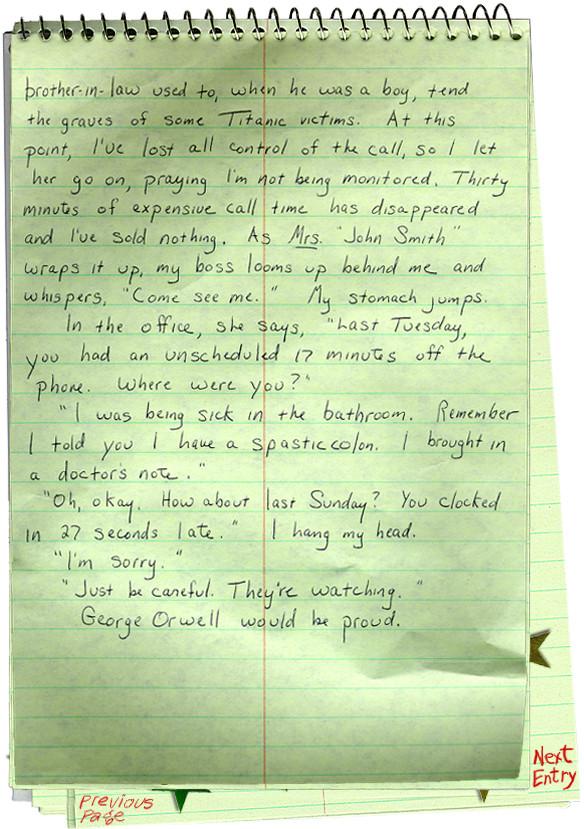 brother-in-law used to, when he was a boy, tend
the graves of some Titanic victims. At this
point, I've lost all control of the call, so I let
her go on, praying I'm not being monitored. Thirty
minutes of expensive call time has disappeared
and I've sold nothing. As Mrs. "John Smith"
wraps it up, my boss looms up behind me and
whispers, "Come see me." My stomach jumps.
In the office, she says, "Last Tuesday,
you had an unscheduled 17 minutes off the
phone. Where were you?"
"I was being sick in the bathroom. Remember
I told you I have a spastic colon. I brought in
a doctor's note."
"Oh, okay. How about last Sunday? You clocked
in 27 seconds late." I hang my head.
"I'm sorry."
"Just be careful. They're watching."
George Orwell would be proud.
Next
Entry
Previous
Page